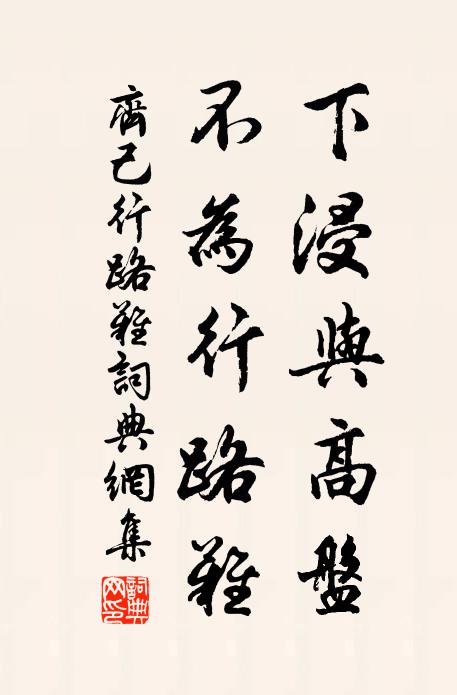 下浸與高盤
不為行路難
齊己行路難詞典網集
詞典網印